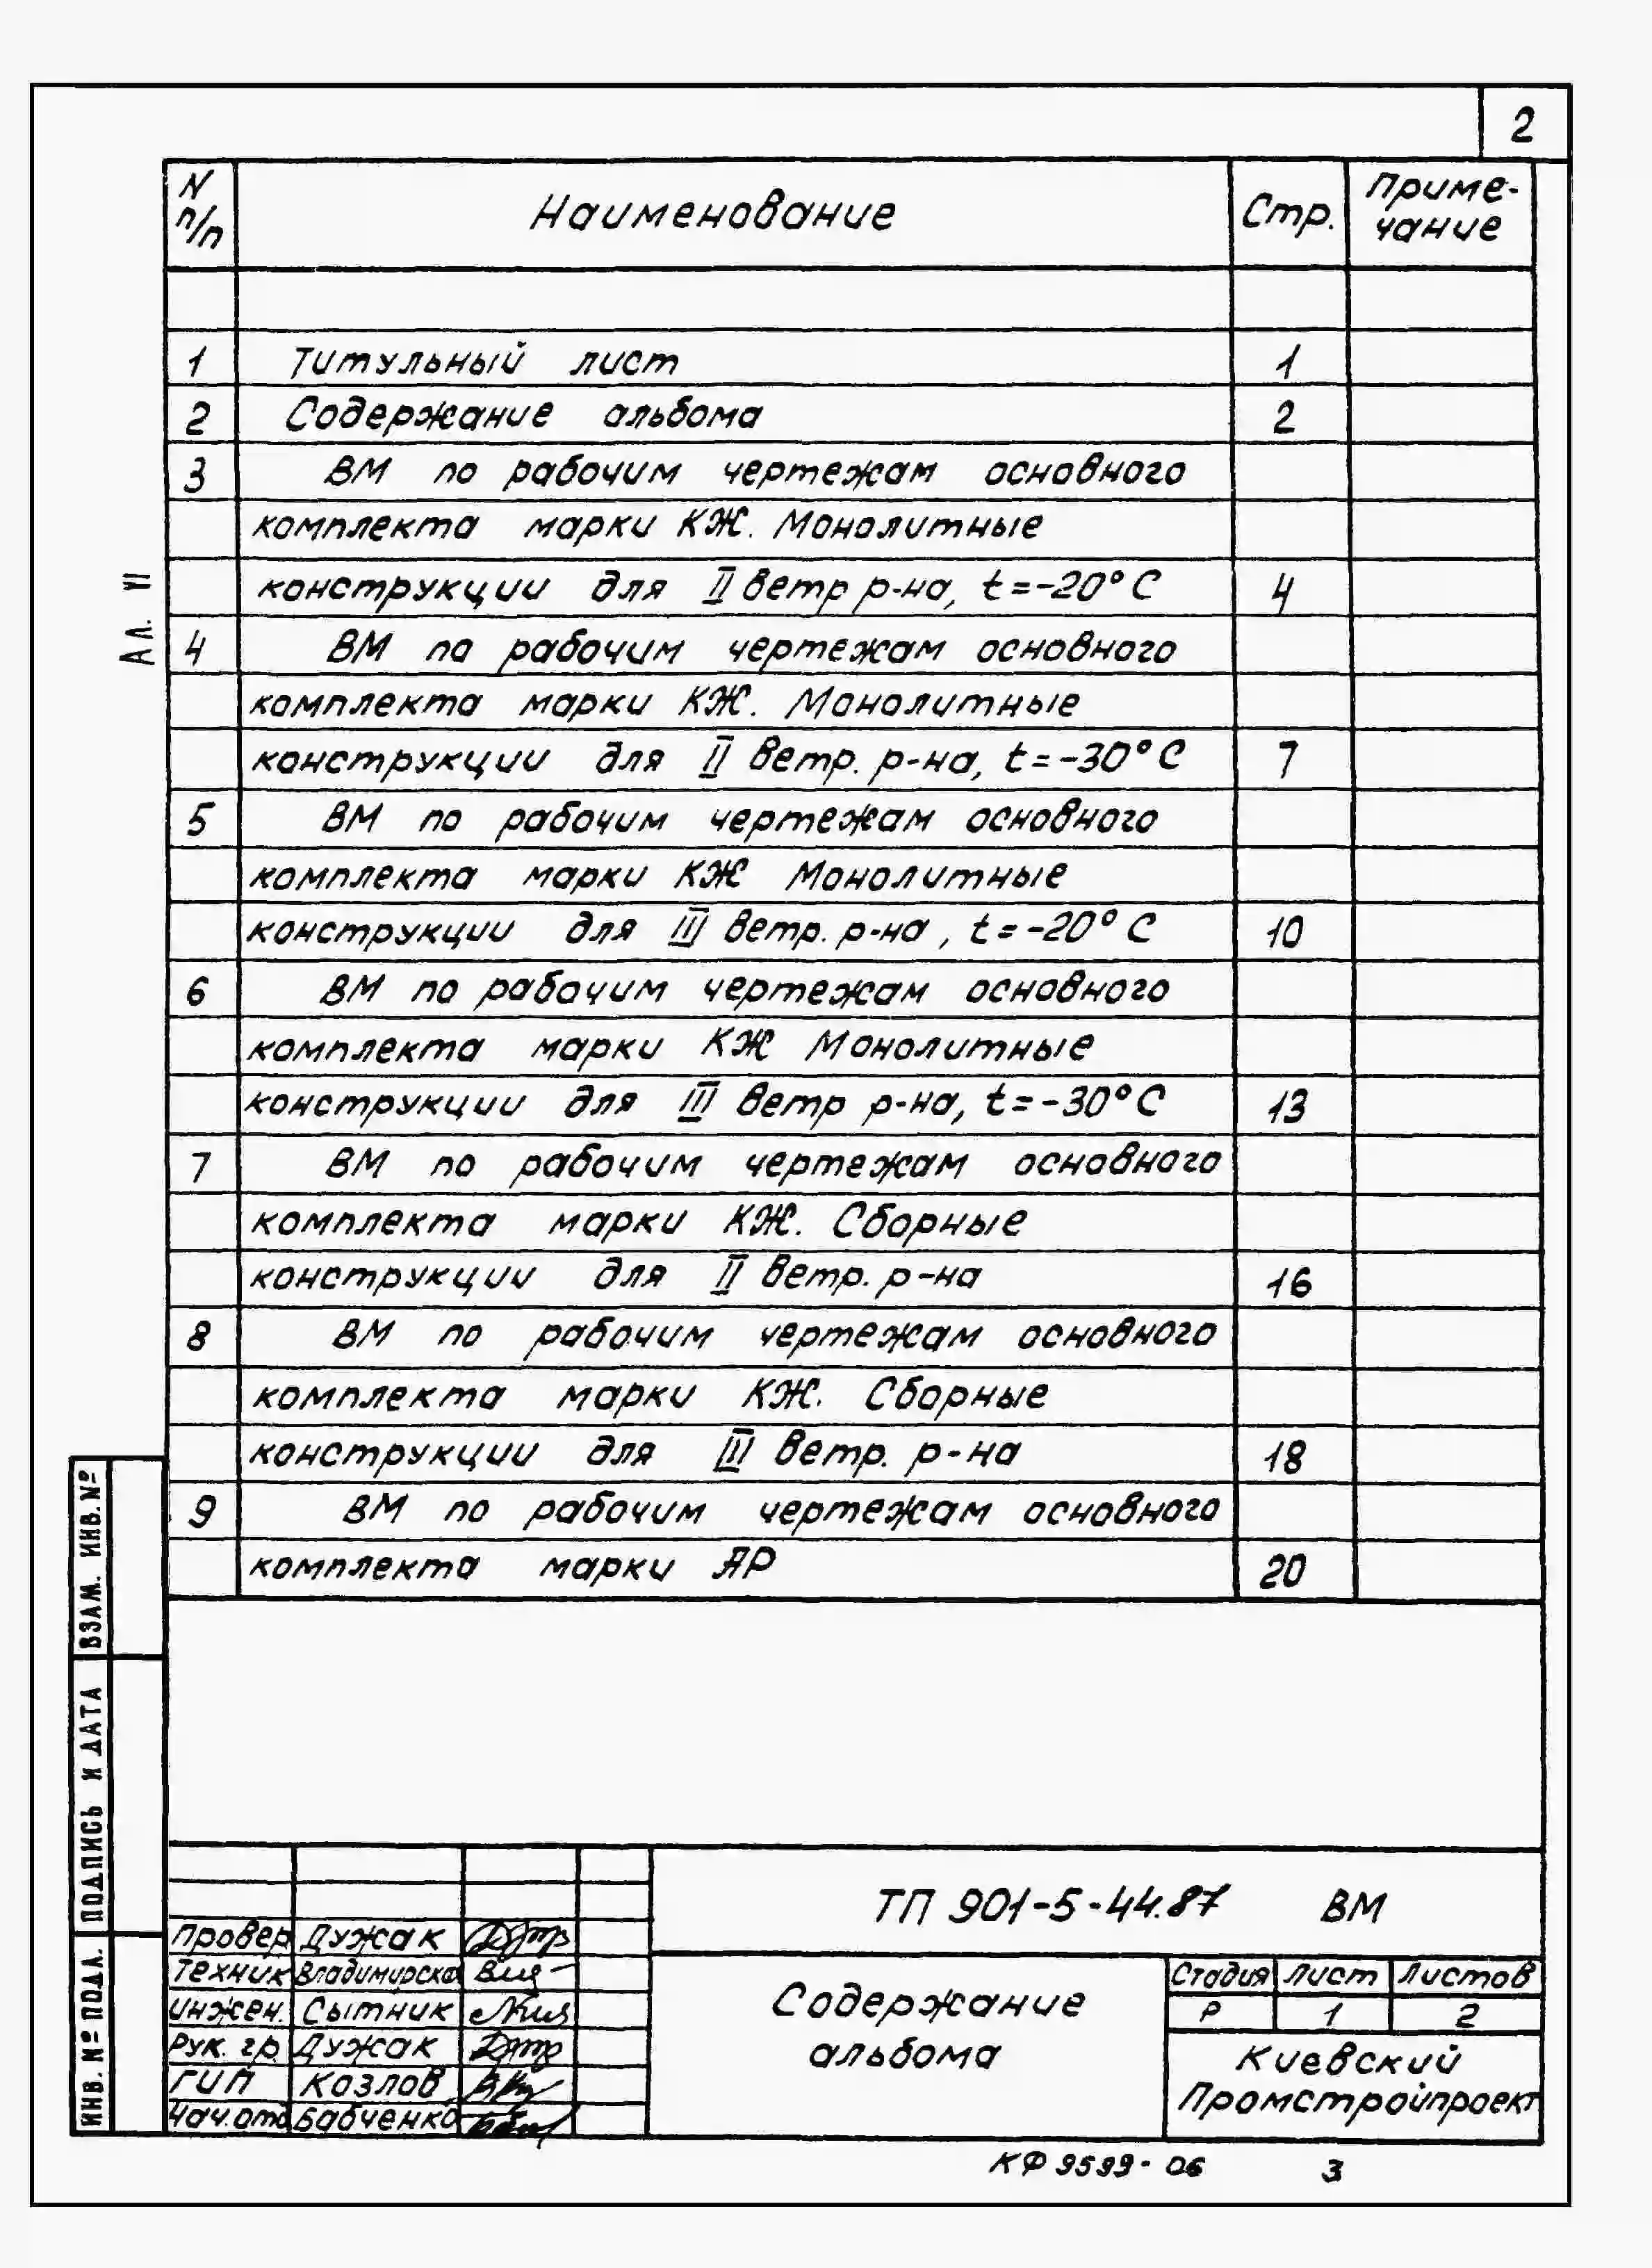 2
N п/п Наименование Стр. Приме-
чание
1 Титульный лист 1
2 Содержание альбома 2
3 ВМ по рабочим чертежам основного
комплекта марки КЖ. Монолитные
конструкции для II ветр р-на, t=-20°С 4
4 ВМ по рабочим чертежам основного
комплекта марки КЖ. Монолитные
конструкции для II ветр. р-на, t=-30°С 7
5 ВМ по рабочим чертежам основного
комплекта марки КЖ Монолитные
конструкции для III ветр. р-на, t=-20°С 10
6 ВМ по рабочим чертежам основного
комплекта марки КЖ Монолитные
конструкции для III ветр р-на, t=-30°С 13
7 ВМ по рабочим чертежам основного
комплекта марки КЖ. Сборные
конструкции для II ветр. р-на 16
8 ВМ по рабочим чертежам основного
комплекта марки КЖ. Сборные
конструкции для III ветр. р-на 18
9 ВМ по рабочим чертежам основного
комплекта марки АР 20
Ал. VI
ВЗАМ. ИНВ. №
ПОДПИСЬ И ДАТА
ИНВ. № ПОДЛ.
ТП 901-5-44.87 ВМ
Провер Дужак
Техник Владимирска
Инжен. Сытник
Рук. гр. Дужак
ГИП Козлов
Нач.отд Бабченко
Содержание
альбома
Стадия Лист Листов
Р 1 2
Киевский
Промстройпроект
КФ 9599-06 3